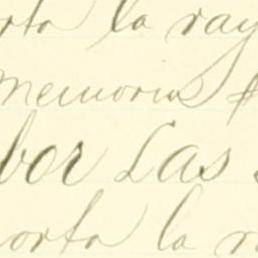 rta la ray
memorias
bor Las
orta la